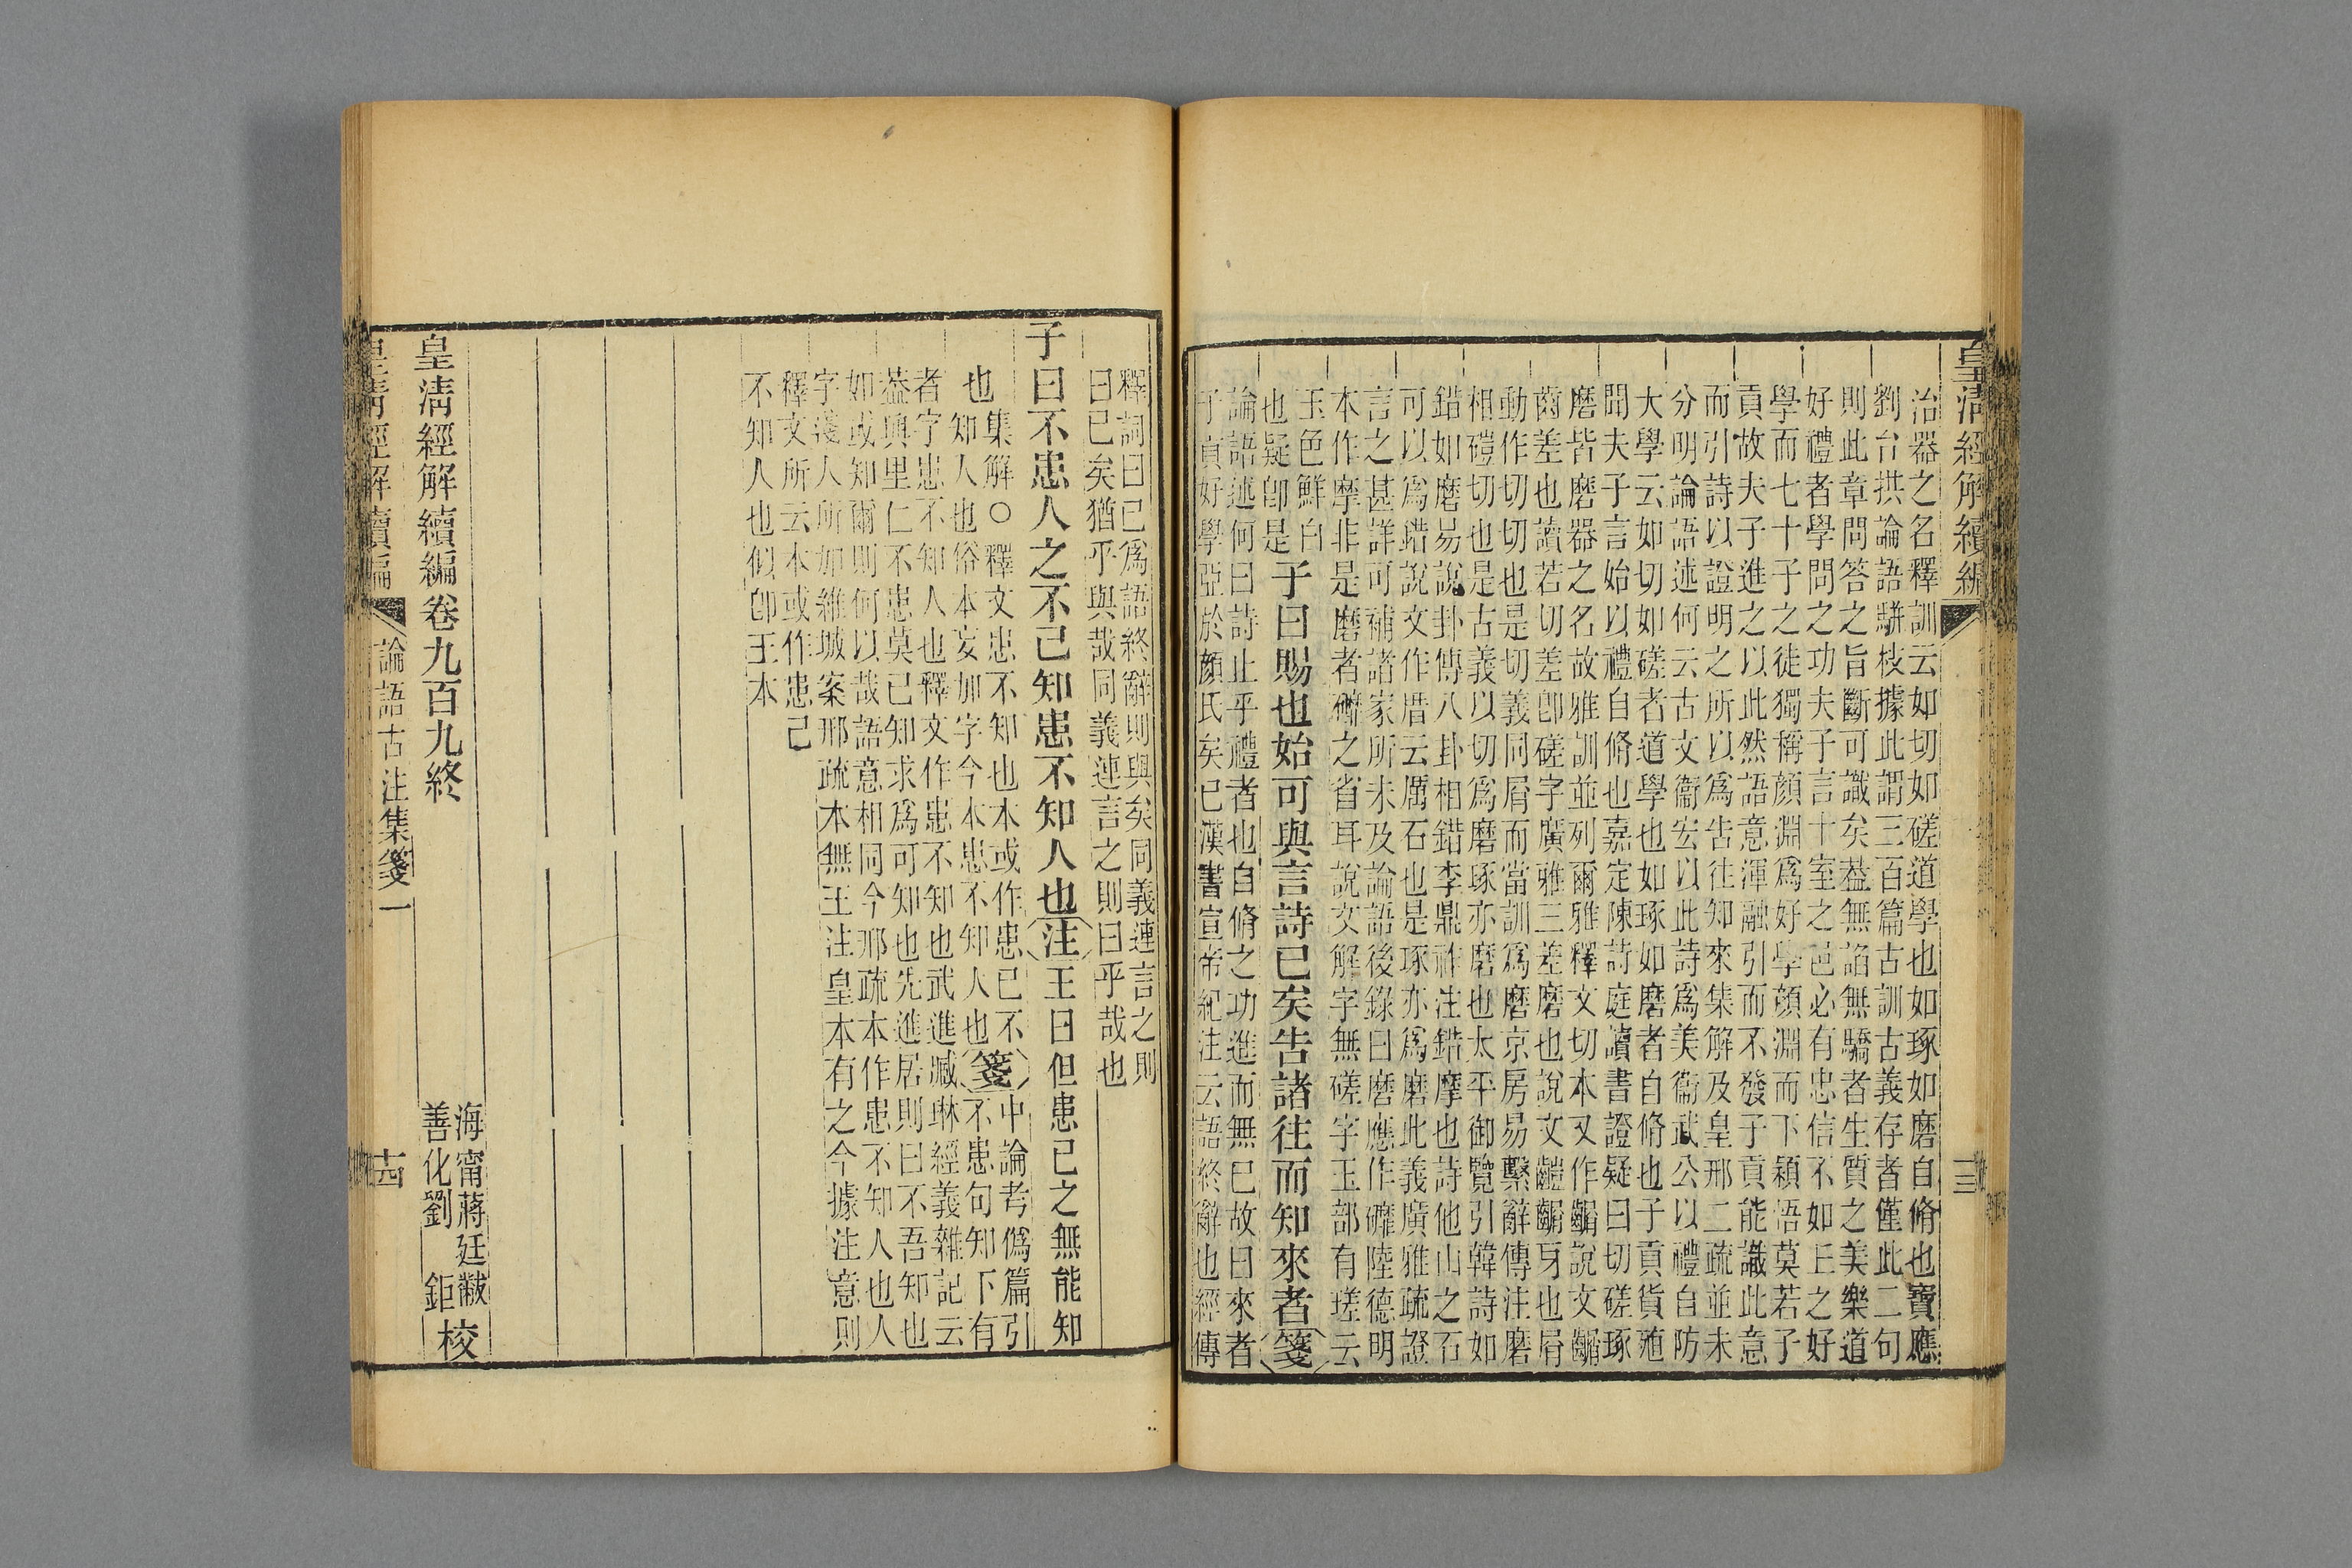 皇清經解續編
治器之名釋訓云如切如磋道學也如琢如磨自脩也寶應
劉台拱論語駢枝據此謂三百篇古訓古義存者僅此二句
則此章問答之旨斷可識矣葢無諂無驕者生質之美樂道
好禮者學問之功夫子言十室之邑必有忠信不如丘之好
學而七十子之徒獨稱顏淵爲好學顏淵而下穎悟莫若子
貢故夫子進之以此然語意渾融引而不發子貢能識此意
而引詩以證明之所以爲告往知來集解及皇邢二疏並未
分明論語述何云古文衞宏以此詩爲美衞武公以禮自防
大學云如切如磋者道學也如琢如磨者自脩也子貢貨殖
聞夫子言始以禮自脩也嘉定陳詩庭讀書證疑曰切磋琢
磨皆磨器之名故雅訓並列爾雅釋文切本又作齺說文齺
齒差也讀若切差卽磋字廣雅三差磨也說文齸齺牙也屑
動作切切也是切義同屑而當訓爲磨京房易繫辭傳注磨
相磑切也是古義以切爲磨琢亦磨也太平御覽引韓詩如
錯如磨易說卦傳八卦相錯李鼎祚注錯摩也詩他山之石
可以爲錯說文作厝云厲石也是琢亦爲磨此義廣雅疏證
言之甚詳可補諸家所未及論語後錄曰磨應作䃺陸德明
本作摩非是磨者䃺之省耳說文解字無磋字玉部有瑳云
玉色鮮白
也疑卽是子曰賜也始可與言詩已矣告諸往而知來者箋
論語述何曰詩止乎禮者也自脩之功進而無已故曰來者
子貢好學亞於顏氏矣已漢書宣帝紀注云語終辭也經傳
釋詞曰已爲語終辭則與矣同義連言之則
曰已矣猶乎與哉同義連言之則曰乎哉也
子曰不患人之不己知患不知人也注王曰但患己之無能知
也集解○釋文患不知也本或作患己不
知人也俗本妄加字今本患不知人也箋中論考僞篇引
不患句知下有
者字患不知人也釋文作患不知也武進臧琳經義雜記云
葢與里仁不患莫己知求爲可知也先進居則曰不吾知也
如或知爾則何以哉語意相同今邢疏本作患不知人也人
字淺人所加維城案邢疏本無王注皇本有之今據注意則
釋文所云本或作患己
不知人也似卽王本
皇清經解續編卷九百九終
海甯蔣廷黻
善化劉鉅
校
皇清經解續編
論語古注集箋一
十四